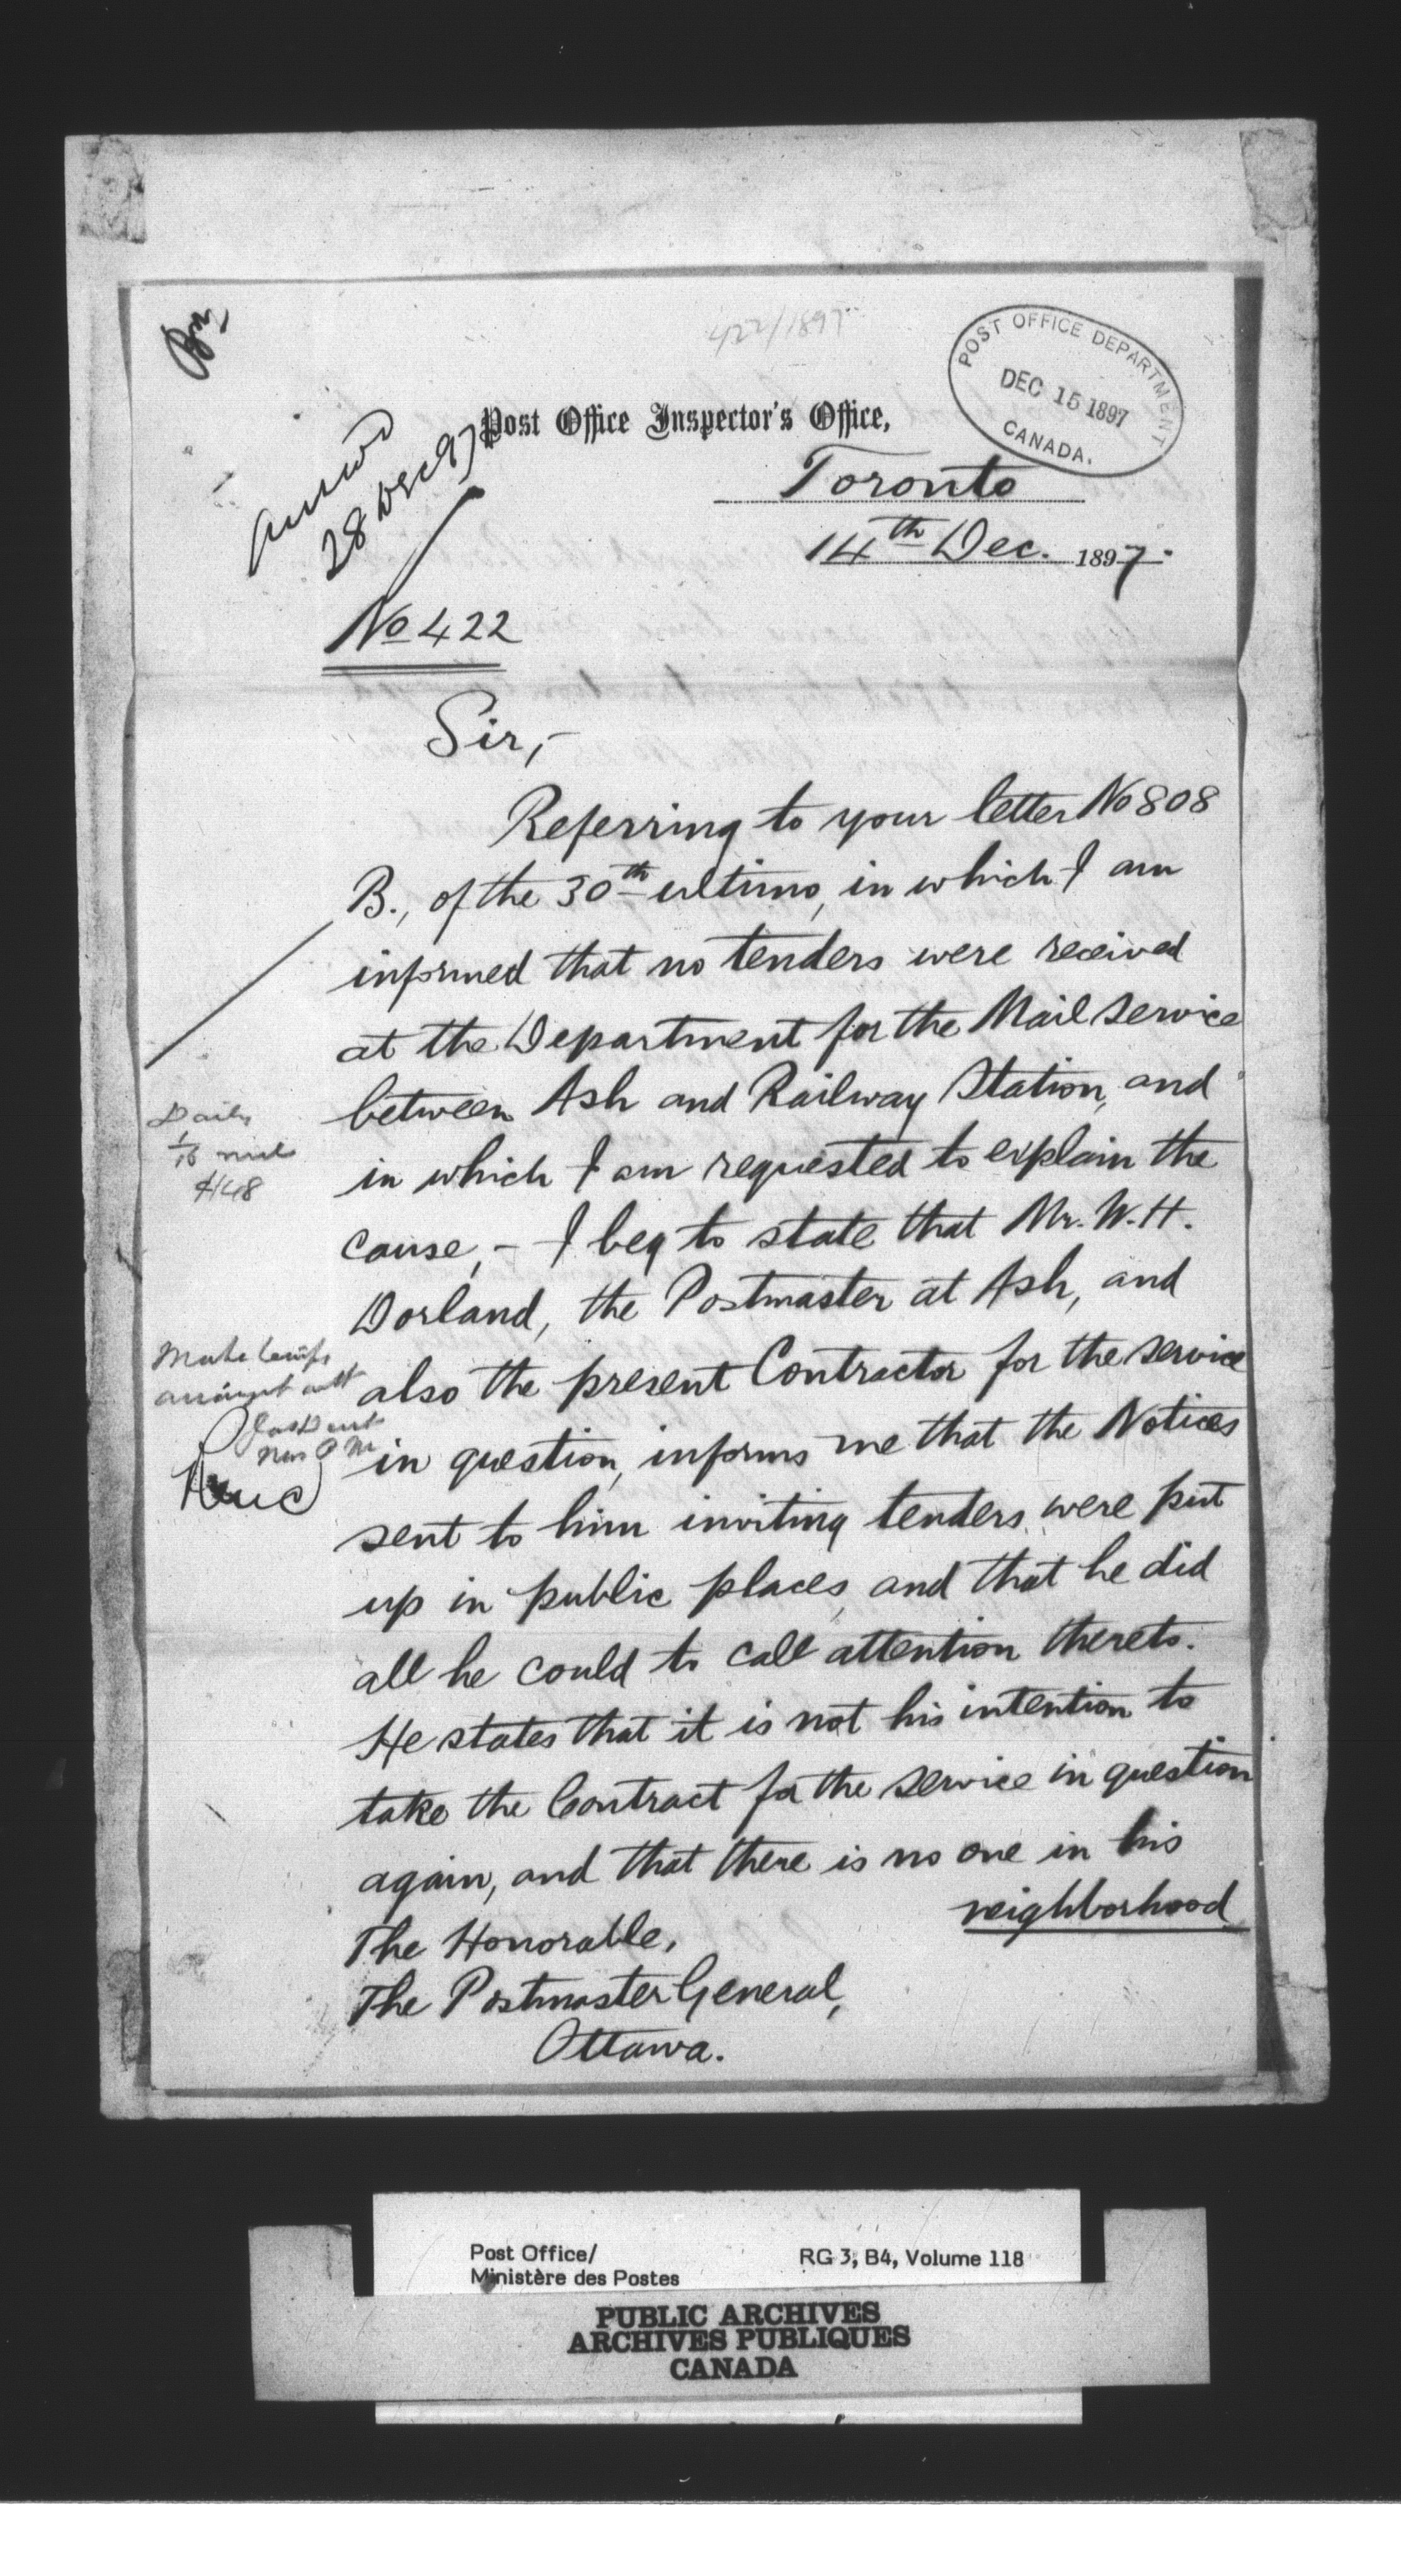 422/1897
POST OFFICE DEPARTMENT
DEC 15 1897
CANADA.
Post Office Inspector's Office,
Toronto
14th Dec. 1897.
28 Dec 97
No 422
Sir,-
Referring to your letter No 808
B., of the 30th ultimo, in which I am
informed that no tenders were received
at the Department for the Mail Service
between Ash and Railway Station, and
in which I am requested to explain the
cause, - I beg to state that Mr. W. H.
Dorland, the Postmaster at Ash, and
also the present Contractor for the service
in question, informs me that the Notices
sent to him inviting tenders were put
up in public places, and that he did
all he could to call attention thereto.
He states that it is not his intention to
take the Contract for the service in question
again, and that there is no one in his
neighborhood
The Honorable,
The Postmaster General,
Ottawa.
Daily
1/16 mile
$48
Make
P M
Post Office/
Ministère des Postes
RG 3, B4, Volume 118
PUBLIC ARCHIVES
ARCHIVES PUBLIQUES
CANADA